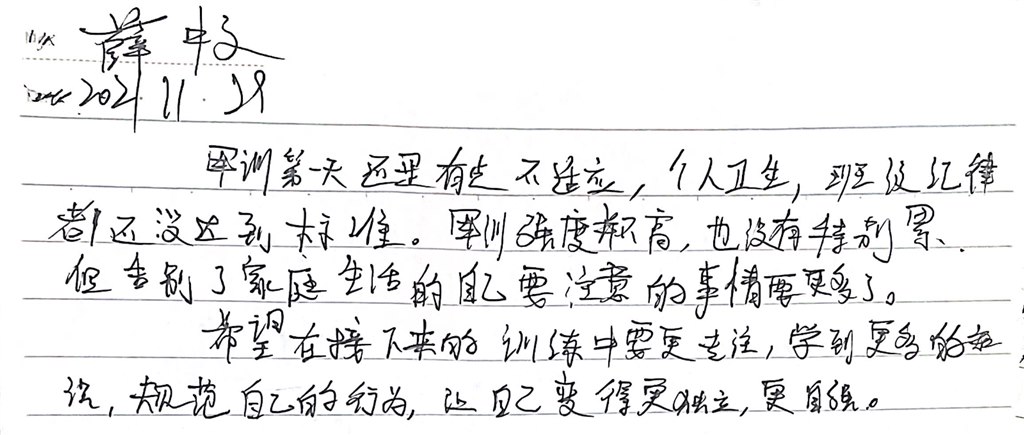 薛中文
2021.11.29
军训第一天还是有点不适应，个人卫生，班级纪律
都还没达到标准。军训强度不高，也没有特别累、
但告别了家庭生活的自己要注意的事情要更多了。
希望在接下来的训练中要更专注，学到更多的知
识，规范自己的行为，让自己变得更独立，更自强。